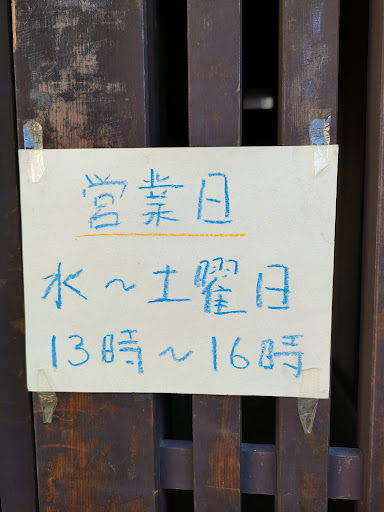 営業日
水~土曜日
13時~16時